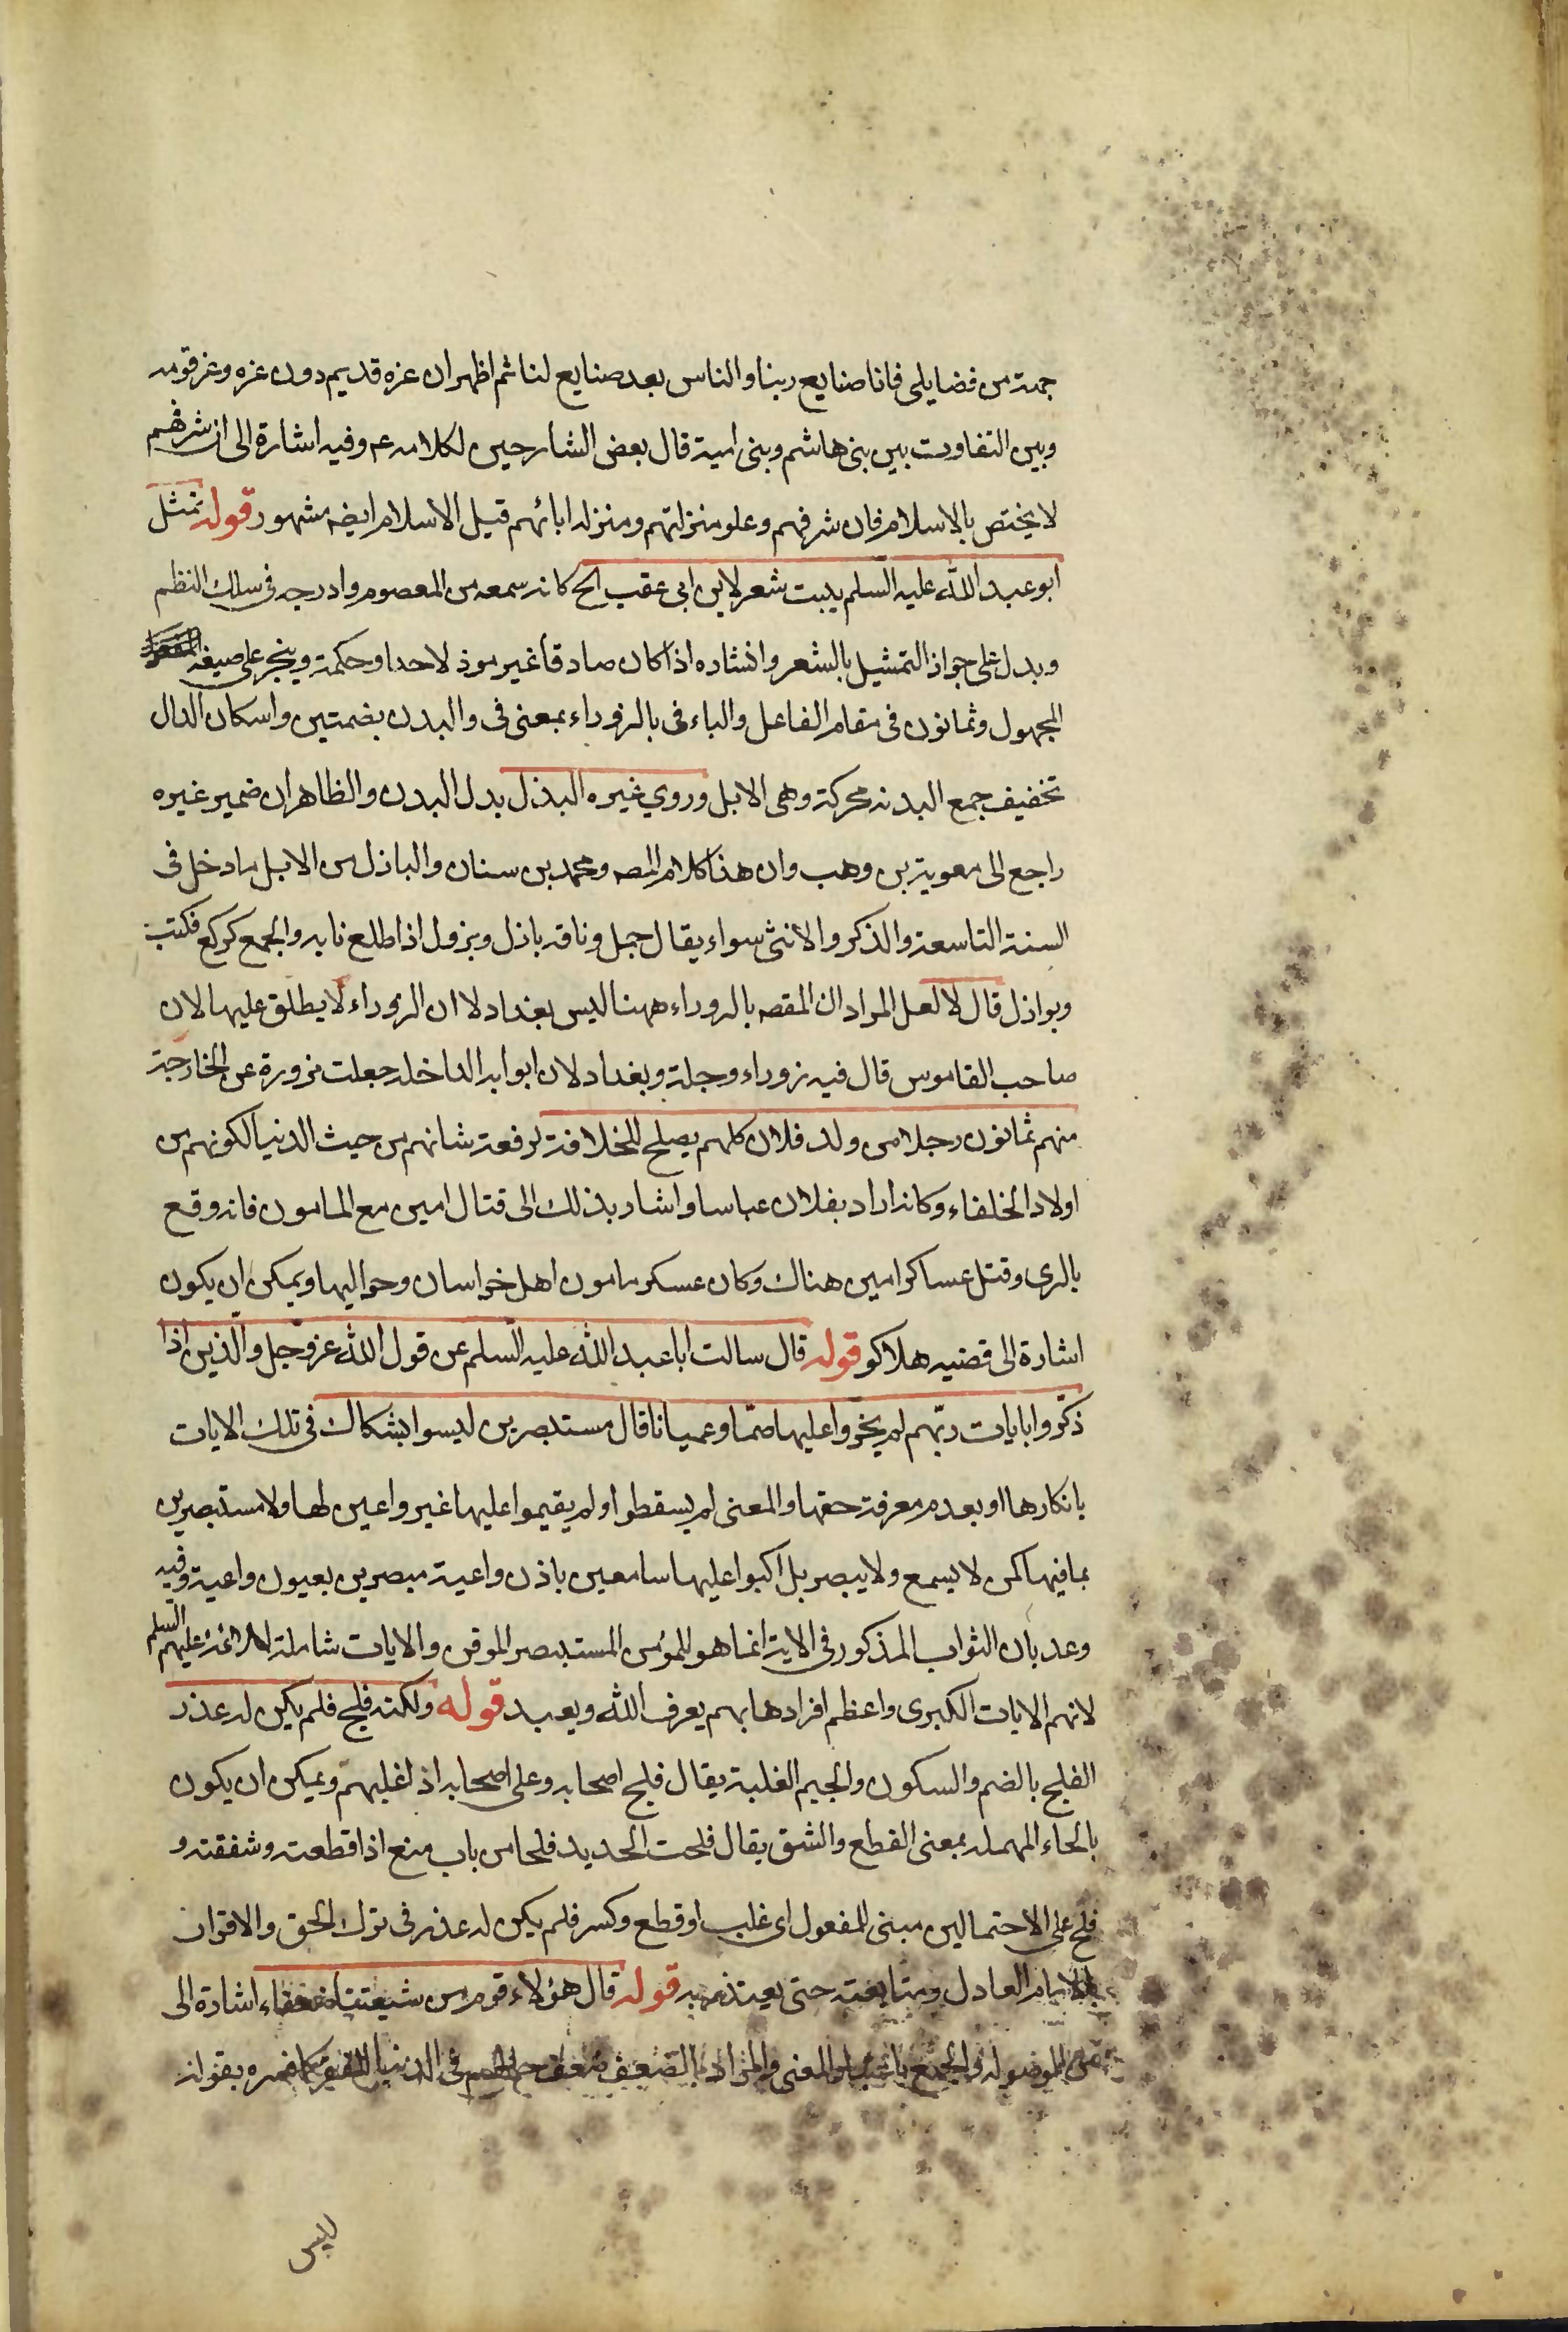 جمة من فضايلى فانا صنايع ربنا والناس بعد صنايع لنا ثم اظهر ان عزه قديم دون عزه وعز قومه
وبين التفاوت بين بنى هاشم وبنى امية قال بعض الشارحين لكلامه عم وفيه اشارة الى ان شرفهم
لا يختص بالاسلام فان شرفهم وعلو منزلتهم ومنزله ابائهم قبل الاسلام ايضه مشهور قوله تمثل
ابو عبد الله عليه السلم ببيت شعر لابن ابى عقب الخ كانه سمعه من المعصوم وادرجه فى سلك النظم
ويدل على جواز التمثيل بالشعر وانشاده اذا كان صادقا غير موذ لاحد او حكمة وينجر على صيغة
المجهول وثمانون فى مقام الفاعل والباء فى بالزوراء بمعنى فى والبدن بضمتين واسكان الدال
تخفيف جمع البدنه محركة وهى الابل وروي غيره البذل بدل البدن والظاهر ان ضمير غيره
راجع الى معوية بن وهب وان هذا كلام المصه ومحمد بن سنان والباذل من الابل ما دخل فى
السنة التاسعة والذكر والانثى سواء يقال جمل وناقه باذل وبزول اذا طلع نابه والجمع كركع فكتب
وبوازل قال لا لعل المراد ان المقصه بالزوراء ههنا ليس بغداد لا ان الزوراء لا يطلق عليها لان
صاحب القاموس قال فيه زوراء وجلة وبغداد لان ابوابه الداخله جعلت مزورة عن الخارجة
منهم ثمانون رجلا من ولد فلان كلهم يصلح للخلافة لرفعة شانهم من حيث الدنيا لكونهم من
اولاد الخلفاء وكانه اراد بفلان عباسا واشار بذلك الى قتال امين مع المامون فانه وقع
بالرى وقتل عساكر امين هناك وكان عسكر مامون اهل خراسان وحواليها ويمكن ان يكون
اشارة الى قضيه هلاكو قوله قال سالت ابا عبد الله عليه السلم عن قول الله عز وجل والذين اذا
ذكروا بايات ربهم لم يخروا عليها صما وعميانا قال مستبصرين ليسوا بشكاك فى تلك الايات
بانكارها او بعدم معرفة حقها والمعنى لم يسقطوا ولم يقيموا عليها غير واعين لها ولا مستبصرين
بما فيها كمن لا يسمع ولا يبصر بل اكبوا عليها سامعين باذن واعية مبصرين بعيون واعية وفيه
وعد بان الثواب المذكور فى الاية انما هو للمؤمن المستبصر الموقن والايات شاملة للائمة عليهم السلم
لانهم الايات الكبرى واعظم افرادها بهم يعرف الله ويعبد قوله ولكنه فلج فلم يكن له عذر
الفلج بالضم والسكون والجيم الغلبة يقال فلج اصحابه وعلى اصحابه اذا غلبهم ويمكن ان يكون
بالحاء المهمله بمعنى القطع والشق يقال فلحت الحديد فلحا من باب منع اذا قطعته وشققته و
فلج على الاحتمالين مبنى للمفعول اى غلب او قطع وكسر فلم يكن له عذر فى ترك الحق والاقرار
بالامام العادل ومتابعته حتى يعتذر به قوله قال هؤلاء قوم من شيعتنا ضعفاء اشارة الى
من الموصوله والجمع باعتبار المعنى والمراد بالضعيف ضعف حالهم فى الدنيا بقوله
ليس